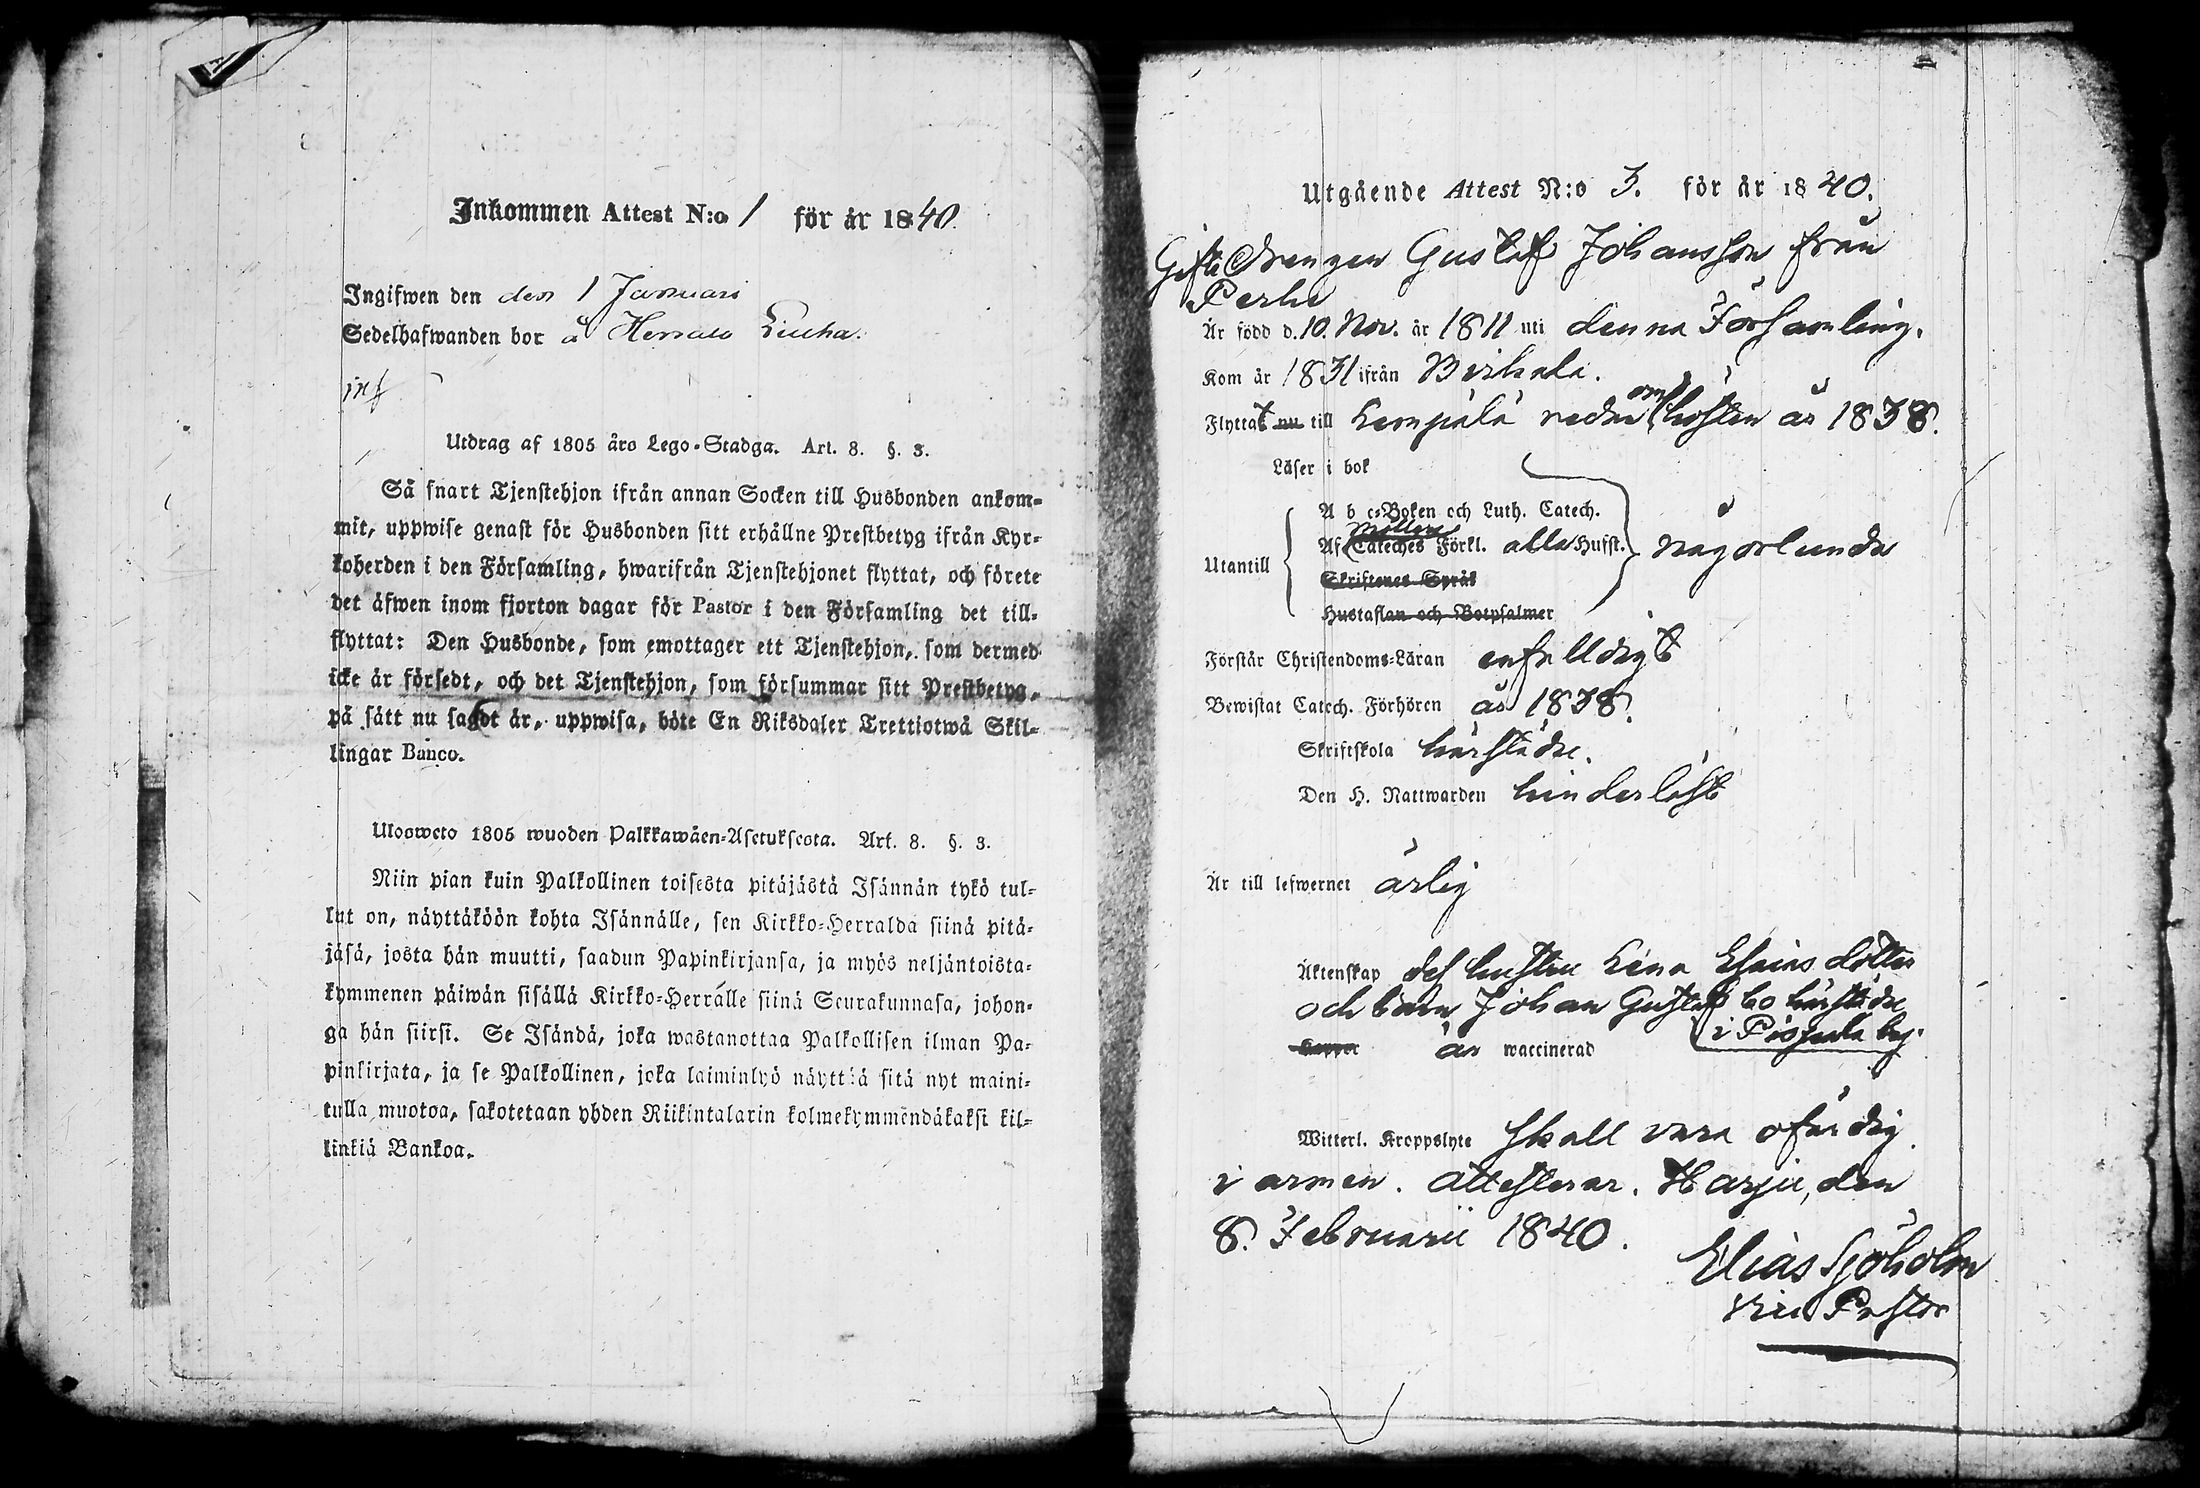 Inkommen Attest N:o 1 för år 1840.
Ingifwen den den 1 Januari
Sedelhafwanden bor å Herrala
Utdrag af 1805 års Lego-Stadga. Art. 8. §. 3.
Så snart Tjenstehjon ifrån annan Socken till Husbonden ankom-
mit, uppwise genast för Husbonden sitt erhållne Prestbetyg ifrån Kyr-
koherden i den Församling, hwarifrån Tjenstehjonet flyttat, och förete
det äfwen inom fjorton dagar för Pastor i den Församling det till-
flyttat: Den Husbonde, som emottager ett Tjenstehjon, som dermed
icke är försedt, och det Tjenstehjon, som försummar sitt Prestbetyg,
på sätt nu sagdt är, uppwisa, böte En Riksdaler Trettiotwå Skil-
lingar Banco.
Ulosweto 1805 wuoden Palkkawäen-Asetuksesta. Art. 8. §. 3.
Niin pian kuin Palkollinen toisesta pitäjästä Isännän tykö tul-
lut on, näyttäköön kohta Isännälle, sen Kirkko-Herralda siinä pitä-
jäsä, josta hän muutti, saadun Papinkirjansa, ja myös neljäntoista-
kymmenen päiwän sisällä Kirkko-Herralle siinä Seurakunnasa, johon-
ga hän siirsi. Se Isändä, joka wastanottaa Palkollisen ilman Pa-
pinkirjata, ja se Palkollinen, joka laiminlyö näyttää sitä nyt maini-
tulla muotoa, sakotetaan yhden Riikintalarin kolmekymmendäkaksi kil-
linkiä Bankoa.
Utgående Attest N:o 3. för år 1840.
Gifte Drengen Gustaf Johansson från
Perhe
Är född d. 10. Nov. år 1811 uti denna Församling.
Kom år 1831 ifrån Birkala.
Flyttat nu till Lempälä redan om hösten år 1838.
Läser i bok
A b c-Boken och Luth. Catech.
Utantill Af Möllers Cateches Förkl. alla Hufst. någorlunda
Skriftenes Språk
Hustaflan och Botpsalmer
Förstår Christendoms-Läran enfaldigt
Bewistat Catech. Förhören år 1838.
Skriftskola härstädes.
Den H. Nattwarden hinderlöst
Är till lefwernet ärlig
Äktenskap dess hustru Lena Esaias dotter
och barn Johan Gustaf bo härstädes
i Pispala by.
Koppor är waccinerad
Witterl. Kroppslyte skall vara ofärdig
i armen. attesterar. Harju, den
8. Februarii 1840.
Elias Sjöholm
Vice Pastor